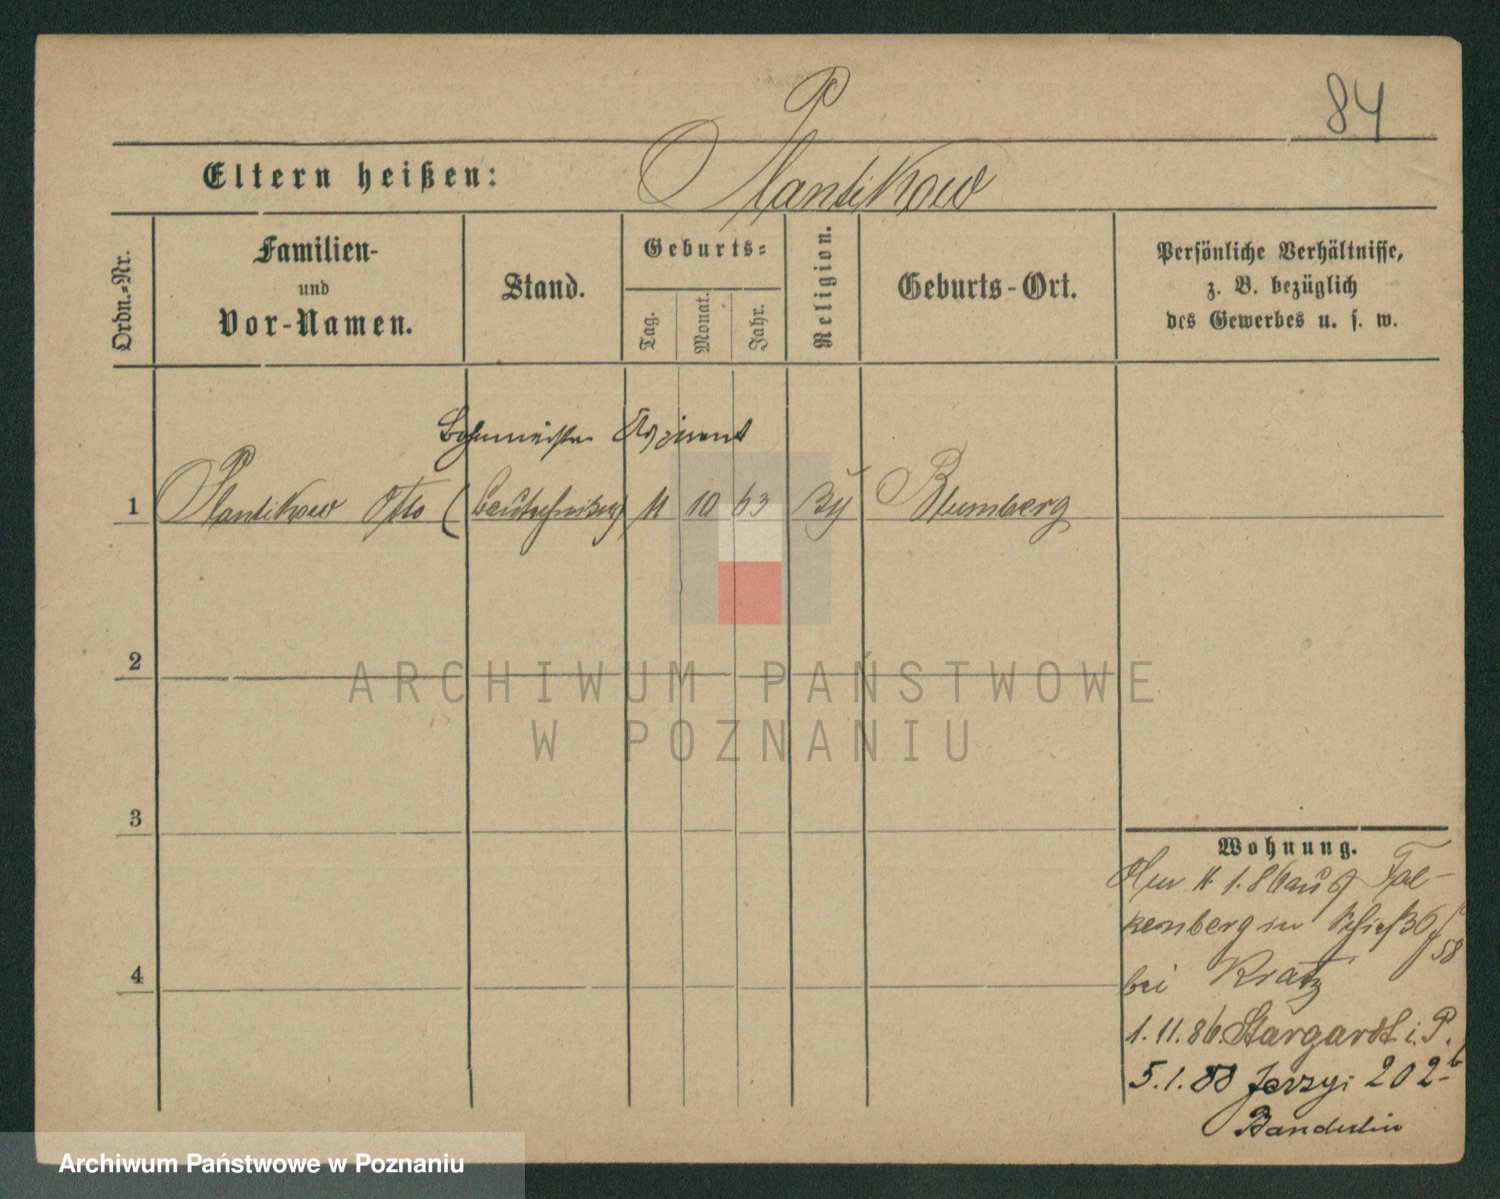 84
Eltern heißen: Plantikow
Ordn.-Nr.
Familien-
und
Vor-Namen.
Stand.
Geburts-
Tag.
Monat.
Jahr.
Religion.
Geburts-Ort.
Persönliche Verhältnisse,
z. B. bezüglich
des Gewerbes u. s. w.
1 Plantikow Otto (Bautechniker) 11 10 63 Blumberg
2
3
4
Wohnung.
1.86 aus Fal-
kenberg in
bei Kratz
1.11.86. Stargardt i. P.
5.1.88 Jerzyi 202
ARCHIWUM PAŃSTWOWE
W POZNANIU
Archiwum Państwowe w Poznaniu